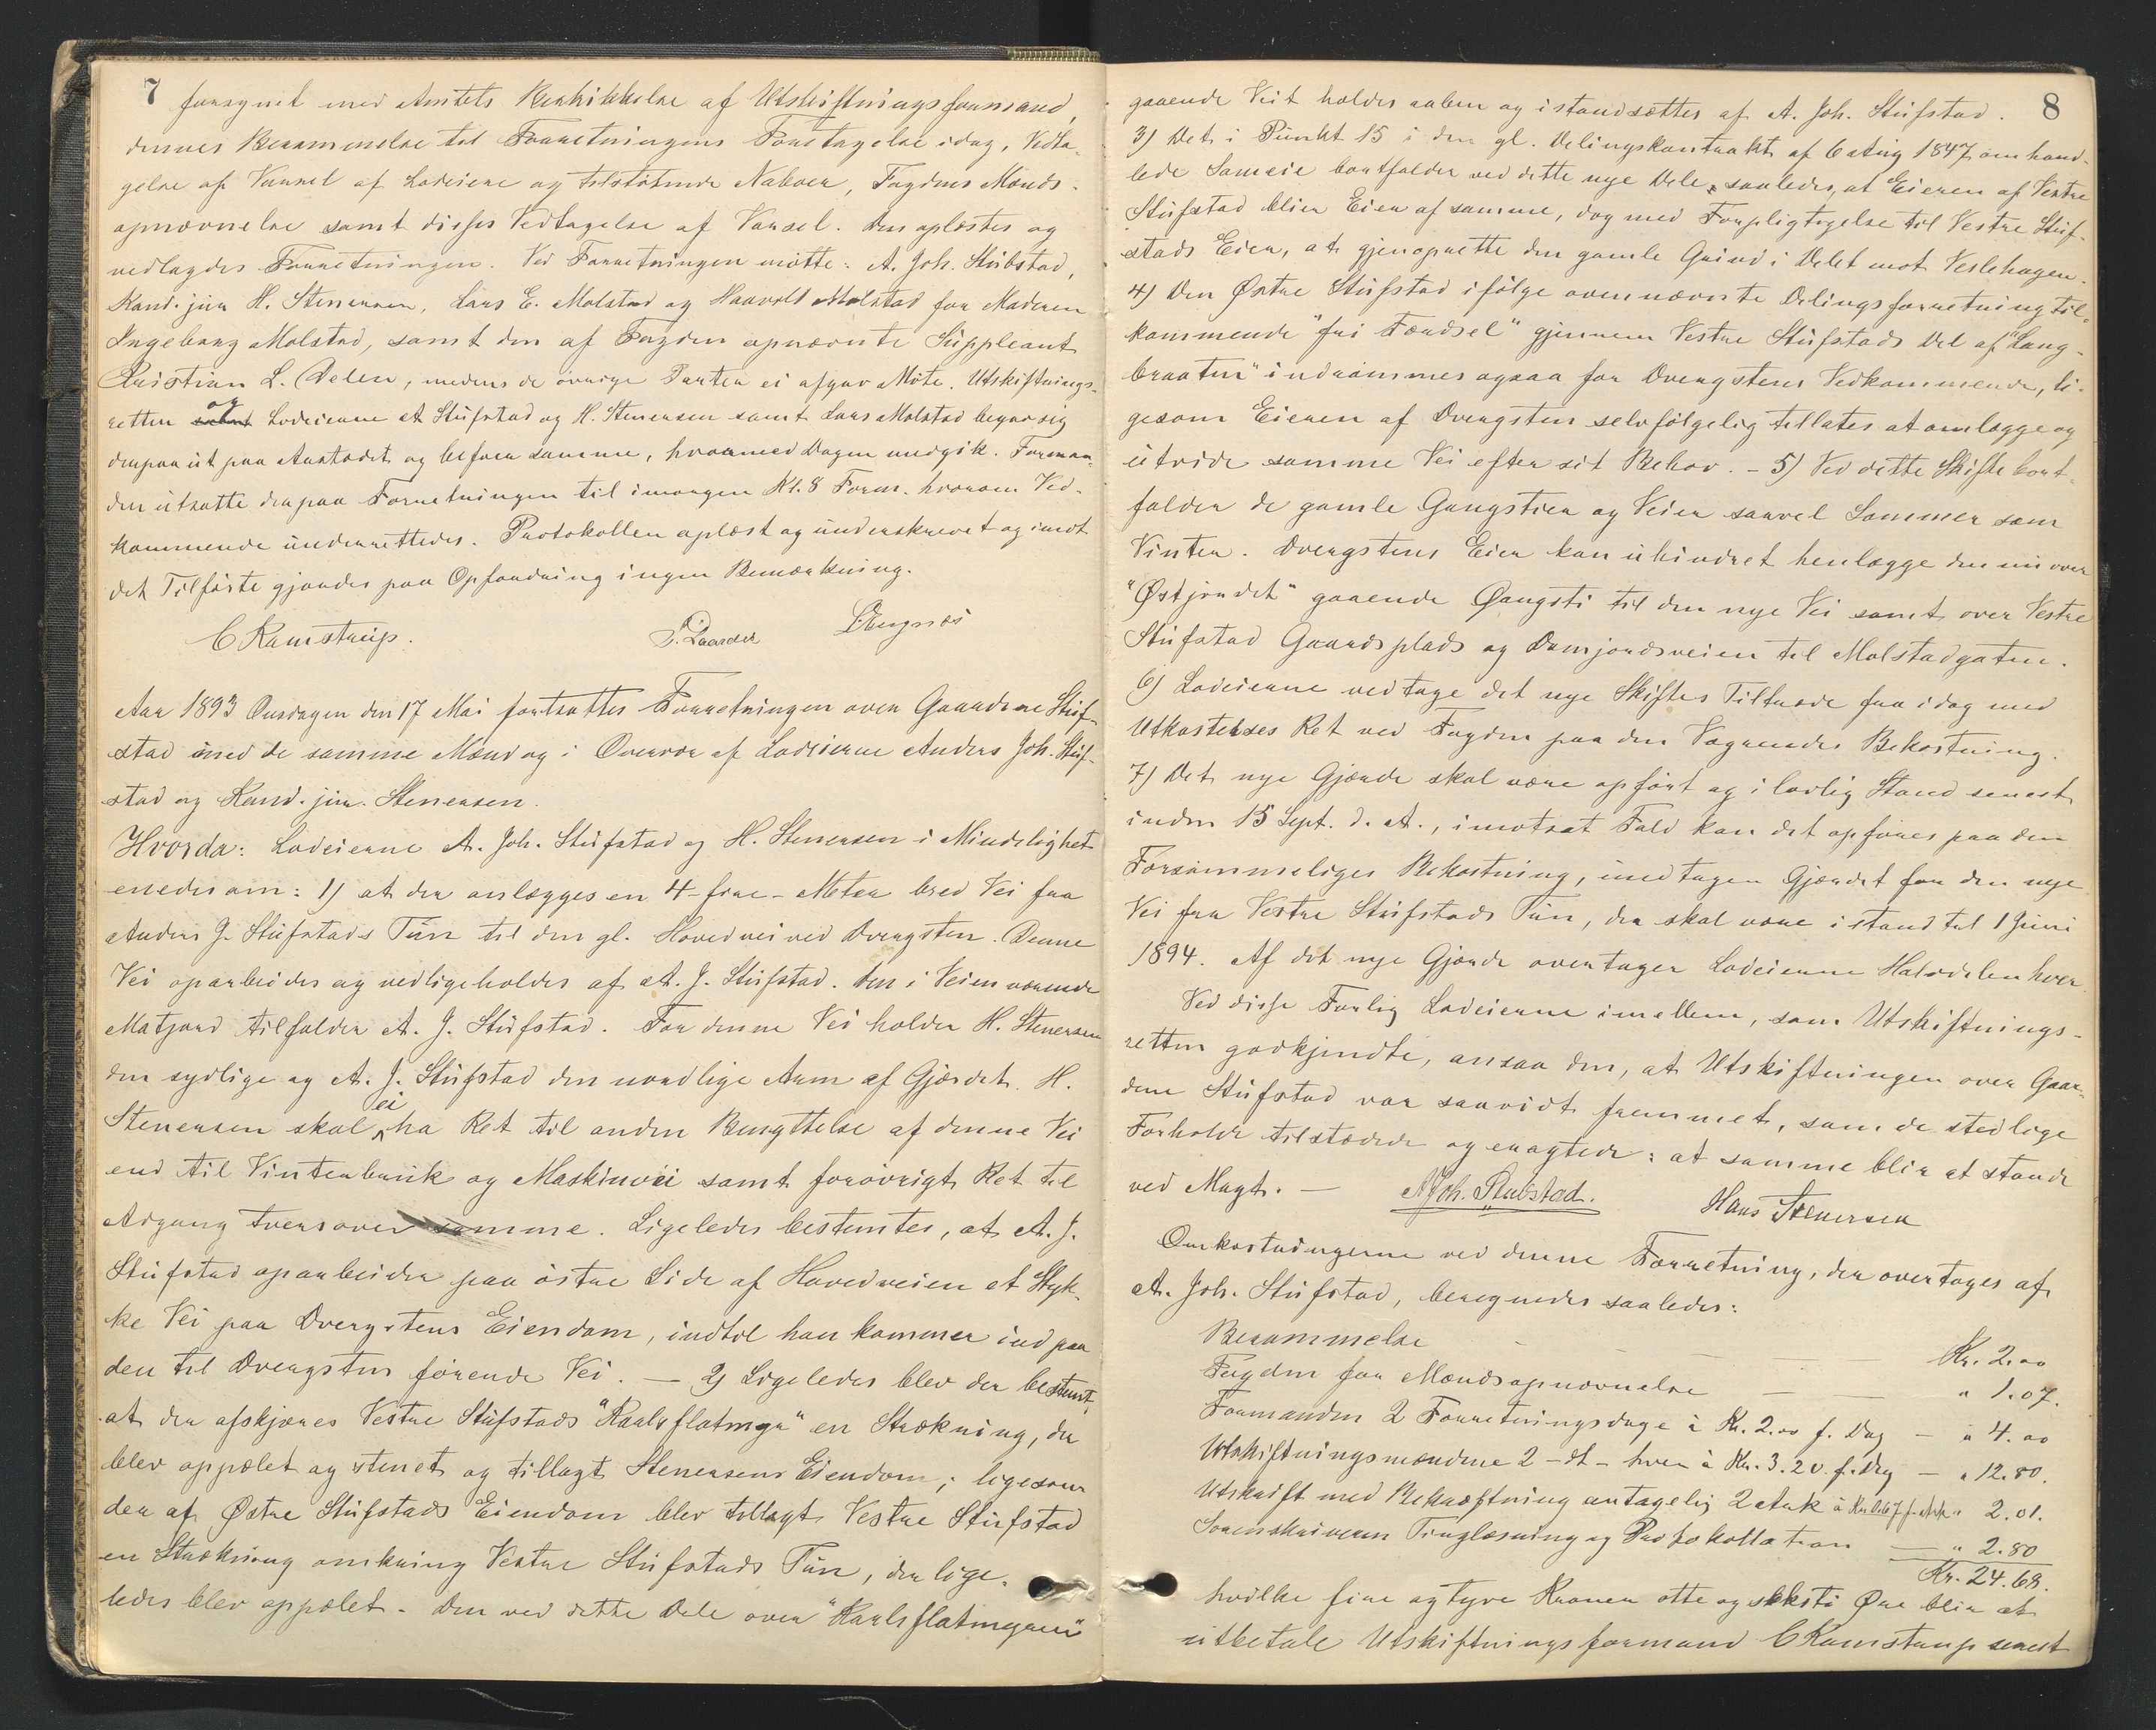 7
forsynet med Amtets Beskikkelse af Utskiftningsformand,
dennes Berammelse til Forretningens Foretagelse idag, Vedta-
gelse af Varsel af Lodeiere og tilstötende Naboer, Fogdens Mands-
opnævnelse samt disses Vedtagelse af Varsel. Den oplæstes og
vedlagdes Forretningen. Ved Forretningen mötte: A. Joh. Stubstad,
Kand. jur H. Stenersen, Lars E. Molstad og Haavold Molstad for Moderen
Ingeborg Molstad, samt den af Fogden opnævnte Suppleant
Kristian L. Delen, medens de övrige Parter ei afgav Möte. Utskiftnings-
retten og Lodeierne A Stufstad og H. Stenersen samt Lars Molstad begav sig
derpaa ut paa Aastedet og befoer samme, hvormed Dagen medgik. Forman-
den utsatte derpaa Forretningen til imorgen Kl. 8 Form. hvorom Ved-
kommende underrettedes. Protokollen oplæst og underskrevet og imot
det Tilförte gjordes paa Opfordring ingen Bemærkning.
C Ramstrup. P. Laarder Engnæs
Aar 1893 Onsdagen den 17 Mai fortsattes Forretningen over Gaardene Stuf-
stad med de samme Mænd og i Overvær af Lodeierne Anders Joh. Stuf-
stad og Kand. jur. Stenersen.
Hvorda: Lodeierne A. Joh. Stufstad og H. Stenersen i Mindelighet
enedes om: 1) at der anlægges en 4-fire-Meter bred Vei fra
Anders J. Stufstads Tun til den gl. Hovedvei ved Dvergsten. Denne
Vei oparbeides og vedligeholdes af A. J. Stufstad. Den i Veien værende
Matjord tilfalder A. J. Stufstad. For denne Vei holder H. Stenersen
den sydlige og A. J. Stufstad den nordlige Arm af Gjærdet. H.
Stenersen skal ei ha Ret til anden Benyttelse af denne Vei
end til Vinterbruk og Maskinvei samt forövrigt Ret til
Adgang tversover samme. Ligeledes bestemtes, at A. J.
Stufstad oparbeider paa östre Side af Hovedveien et Styk-
ke Vei paa Dvergstens Eiendom, indtil han kommer ind paa
den til Dvergsten förende Vei. — 2) Ligeledes blev der bestemt,
at der afskjæres Vestre Stufstads "Karlsflatmyr" en Strækning, der
blev oppælet og stenet og tillagt Stenersens Eiendom; ligesom
der af Østre Stufstads Eiendom blev tillagt Vestre Stufstad
en Strækning omkring Vestre Stufstads Tun, der lige-
ledes blev oppælet. Den ved dette Dele over "Karlsflatmyren"
8
gaaende Veit holdes aaben og istandsættes af A. Joh. Stufstad.
3) Det i Punkt 15 i den gl. Delingskontrakt af 6 Aug 1847 omhand-
lede Sameie bortfalder ved dette nye Dele, saaledes, at Eieren af Vestre
Stufstad blier Eier af samme, dog med Forpligtigelse til Vestre Stuf-
stads Eier, at gjenoprette den gamle Grind i Delet mot Veslehagen.
4) Den Østre Stufstad ifölge ovennævnte Delingsforretning til-
kommende "fri Færdsel" gjennem Vestre Stufstads Del af "Lang-
braaten" indrömmes ogsaa for Dvergstens Vedkommende, li-
gesom Eieren af Dvergsten selvfölgelig tillates at omlægge og
utvide samme Vei efter sit Behov. - 5) Ved dette Skifte bort-
falder de gamle Gangstier og Veier saavel Sommer som
Vinter. Dvergstens Eier kan uhindret henlægge den nu over
"Østjordet" gaaende Gangsti til den nye Vei samt over Vestre
Stufstad Gaardsplads og Damjordsveien til Molstadgaten.
6) Lodeierne vedtage det nye Skiftes Tiltræde fra idag med
Utkastelses Ret ved Fogden paa den Vægrendes Bekostning.
7) Det nye Gjærde skal være opfört og i lovlig Stand senest
inden 15 Sept. d. A., imotsat Fald kan det opföres paa den
Forsömmeliges Bekostning, undtagen Gjærdet for den nye
Vei fra Vestre Stufstads Tun, der skal være istand til 1 Juni
1894. Af det nye Gjærde overtager Lodeierne Halvdelen hver.
Ved disse Forlig Lodeierne imellem, som Utskiftnings-
retten godkjendte, ansaa den, at Utskiftningen over Gaar-
dene Stufstad var saavidt fremmet, som de stedlige
Forholde tilstædede og eragtede: at samme blir at stande
ved Magt. — A Joh. Stubstad. Hans Stenersen
Omkostningerne ved denne Forretning, der overtages af
A. Joh. Stufstad, beregnedes saaledes:
Berammelse - — — — Kr. 2.00
Fogden for Mændsopnævnelse — " 1.07.
Formanden 2 Forretningsdage à Kr. 2.00 p. Dag — " 4.00
Utskiftningsmændene 2 - dt - hver à Kr. 3.20 p. Dag — " 12.80.
Utskrift med Bekræftning antagelig 2 Ark à Kr. 0.67 p. Ark " 2.01.
Sorenskriveren Tinglæsning og Protokollation — " 2.80
Kr. 24.68.
hvilke fire og tyve Kroner otte og seksti Øre blir at
utbetale Utskiftningsformand C Ramstrup senest